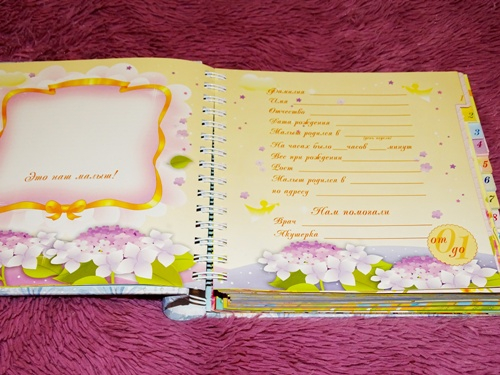 Это наш малыш!
Фамилия
Имя
Отчество
Дата рождения
Малыш родился в
На часах было часов минут
Вес при рождении
Рост
Малыш родился в
по адресу
Нам помогали
Врач
Акушерка
от 0 до 1
2
3
4
5
6
7